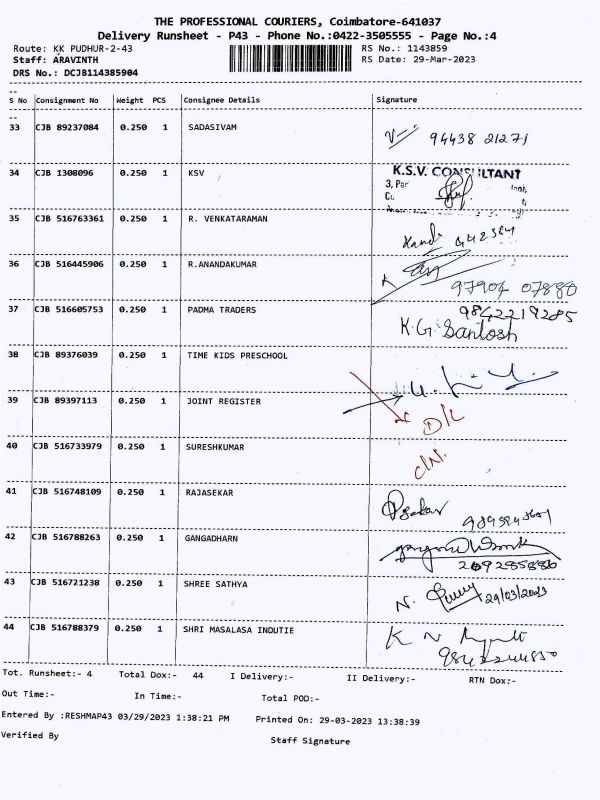 THE PROFESSIONAL COURIERS, Coimbatore-641037
Delivery Runsheet - P43 - Phone No.:0422-3505555 - Page No.:4
Route: KK PUDHUR-2-43 RS No.: 1143859
Staff: ARAVINTH RS Date: 29-Mar-2023
DRS No.: DCJB114385904
--
S No Consignment No Weight PCS Consignee Details Signature
--
33 CJB 89237084 0.250 1 SADASIVAM 94438 21271
34 CJB 1308096 0.250 1 KSV K.S.V. CONSULTANT
3,
35 CJB 516763361 0.250 1 R. VENKATARAMAN
36 CJB 516445906 0.250 1 R.ANANDKUMAR
97904 07880
37 CJB 516605753 0.250 1 PADMA TRADERS 9842219285
K.G. Santosh
38 CJB 89376039 0.250 1 TIME KIDS PRESCHOOL
39 CJB 89397113 0.250 1 JOINT REGISTER
D/L
40 CJB 516733979 0.250 1 SURESHKUMAR
41 CJB 516748109 0.250 1 RAJASEKAR
42 CJB 516788263 0.250 1 GANGADHARN
43 CJB 516721238 0.250 1 SHREE SATHYA
N. 29/03/2023
44 CJB 516788379 0.250 1 SHRI MASALASA INDUTIE K N
Tot. Runsheet:- 4 Total Dox:- 44 I Delivery:- II Delivery:- RTN Dox:-
Out Time:- In Time:- Total POD:-
Entered By :RESHMAP43 03/29/2023 1:38:21 PM Printed On: 29-03-2023 13:38:39
Verified By Staff Signature